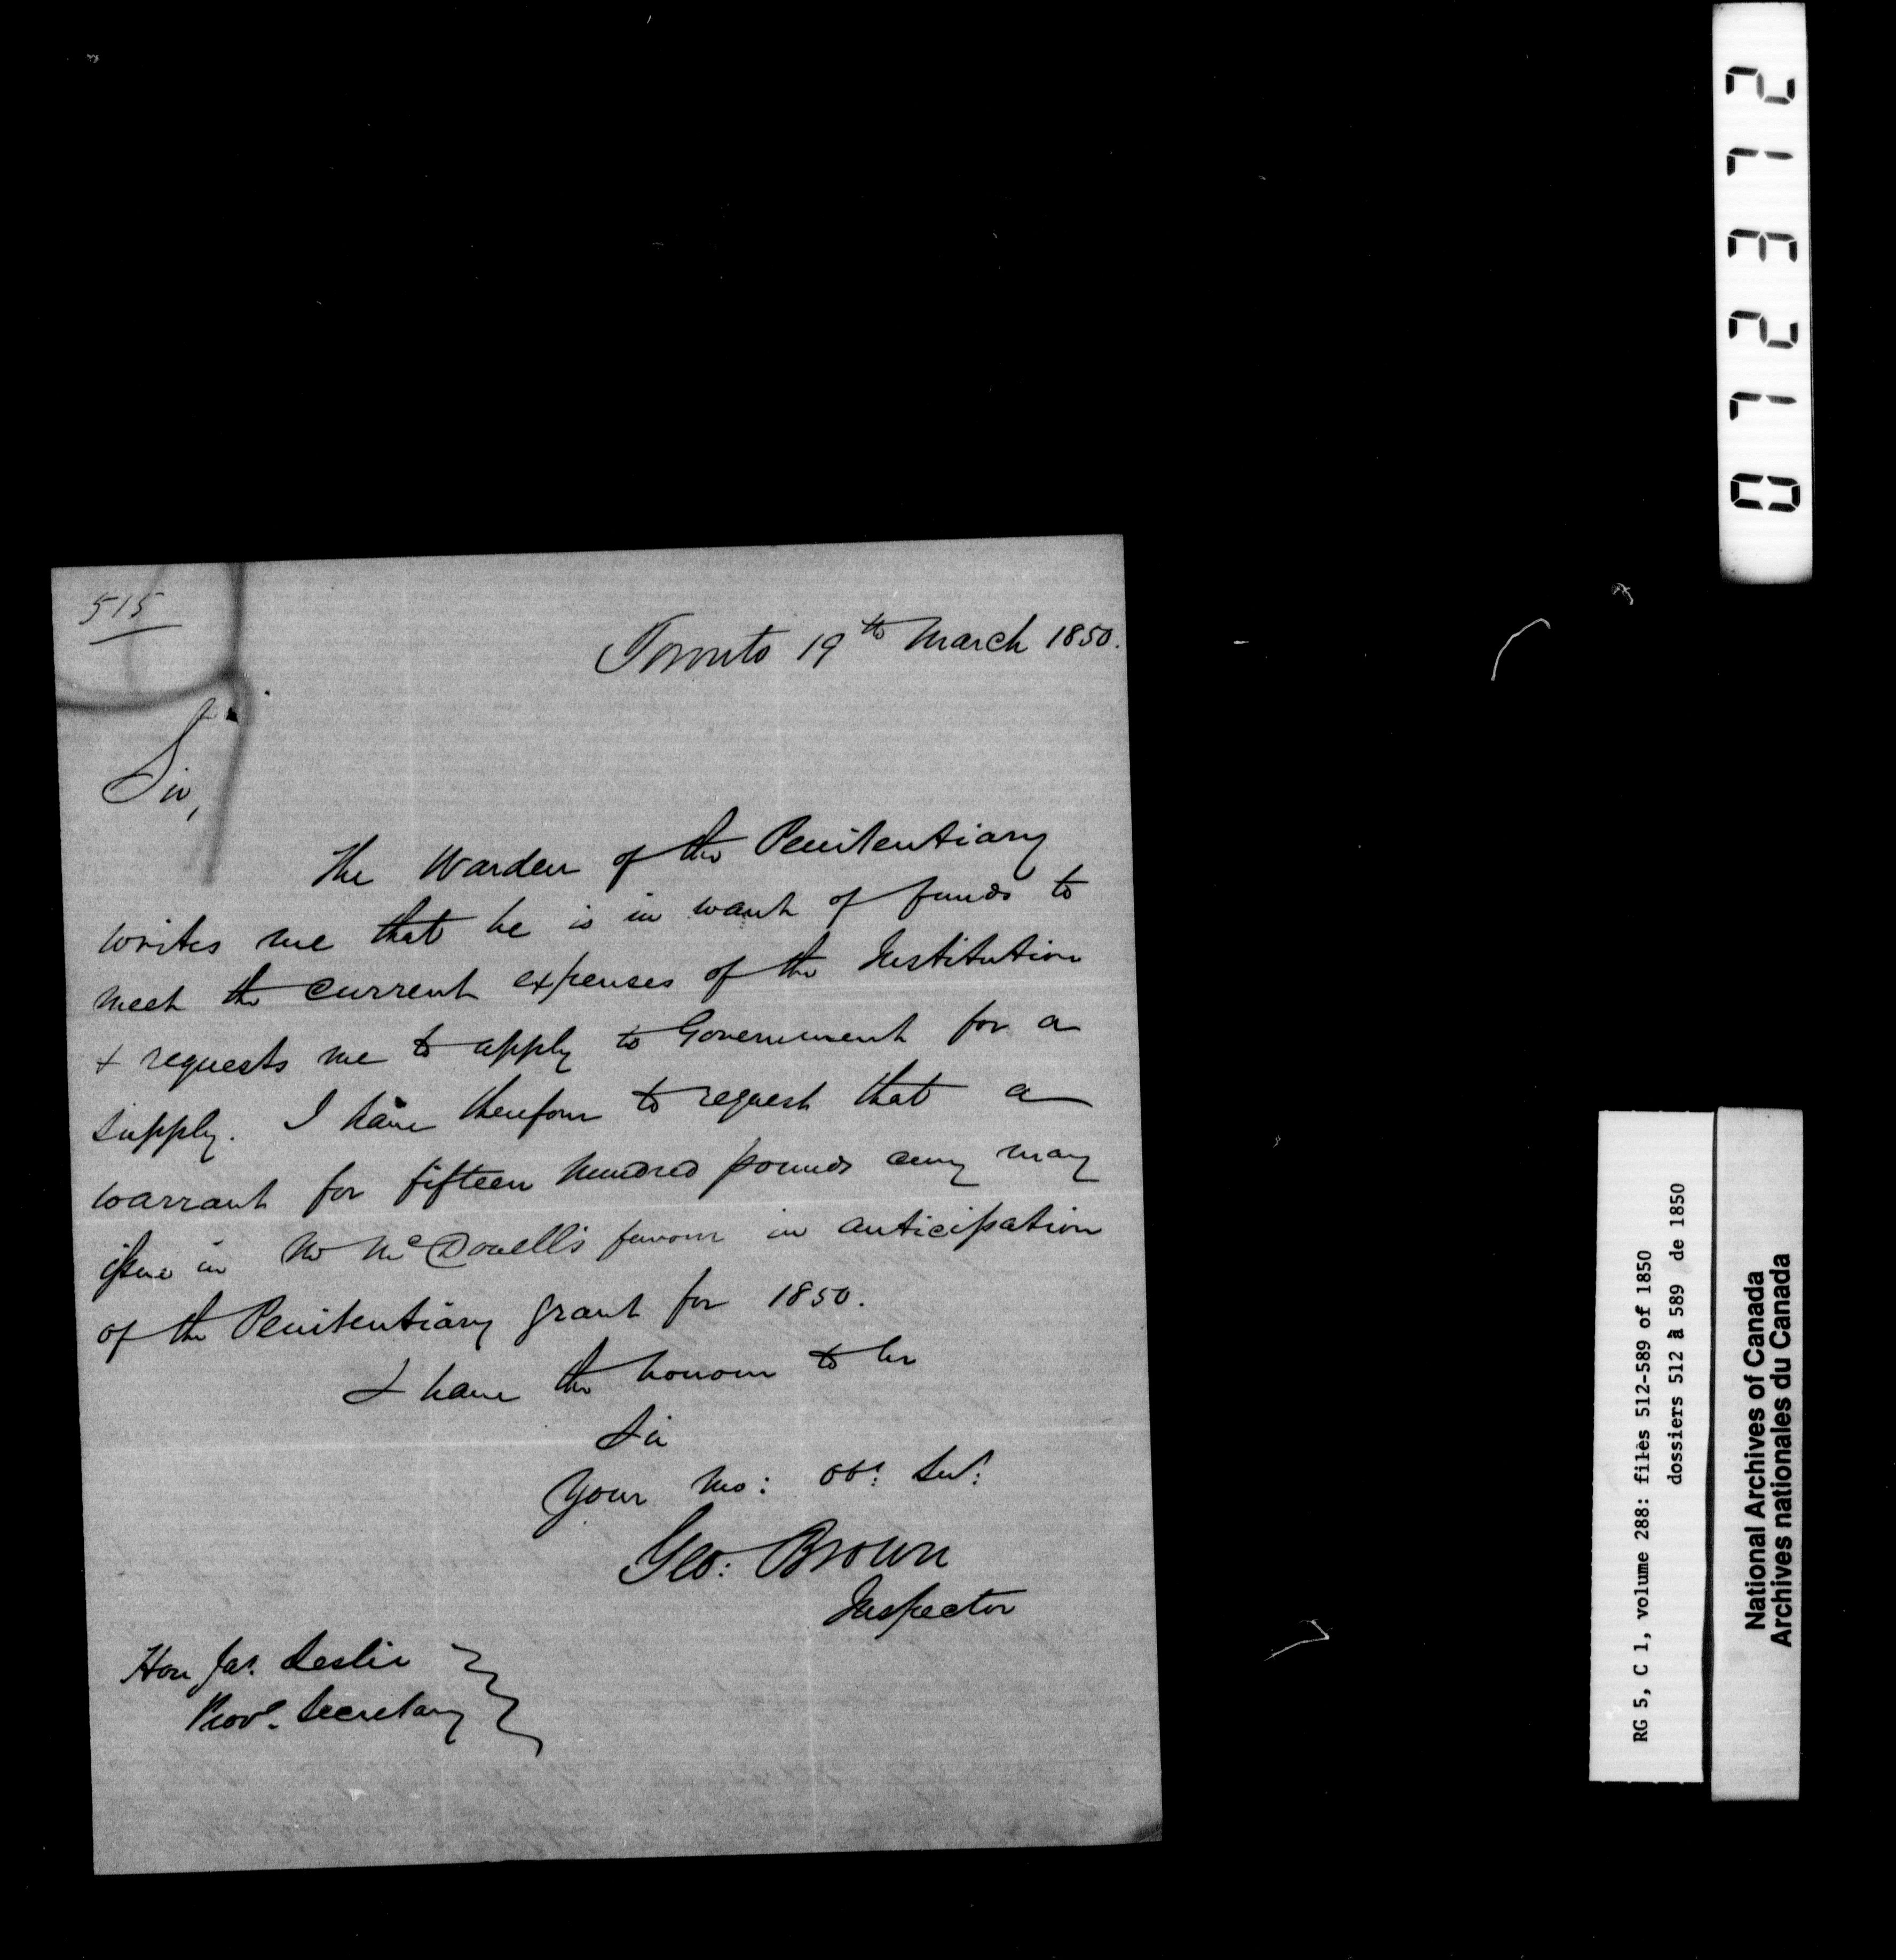 515
Toronto 19th March 1850.
Sir,
The Warden of the Penitentiary
writes me that he is in want of funds to
meet the current expenses of the Institution
+ requests me to apply to Government for a
supply. I have therefore to request that a
warrant for fifteen hundred pounds curcy may
issue in Mr McDonell's favour in anticipation
of the Penitentiary grant for 1850.
I have the honour to be
Sir
Your Mo: obt: Sert:
Geo: Brown
Inspector
Hon Jas. Leslie
Provl. Secretary
012312
RG 5, C 1, volume 288: files 512-589 of 1850
dossiers 512 à 589 de 1850
National Archives of Canada
Archives nationales du Canada